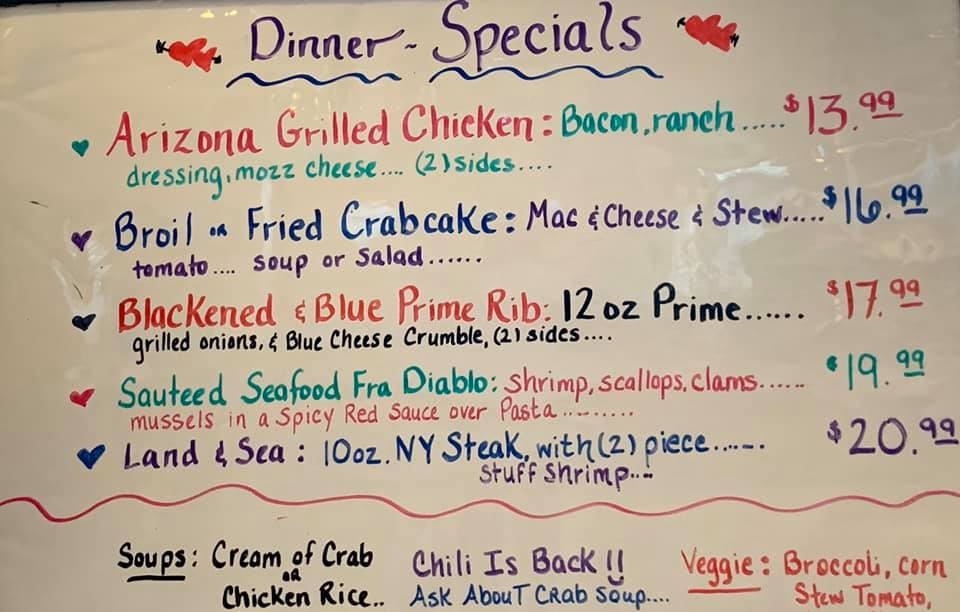 Dinner - Specials
Arizona Grilled Chicken: Bacon, ranch.....$13.99
dressing, mozz cheese.... (2) sides....
Broil or Fried Crabcake: Mac & Cheese & Stew.....$16.99
tomato.... soup or Salad......
Blackened & Blue Prime Rib: 12 oz Prime...... $17.99
grilled onions, & Blue Cheese Crumble, (2) sides....
Sauteed Seafood Fra Diablo: Shrimp, scallops, clams...... $19.99
mussels in a Spicy Red Sauce over Pasta.........
Land & Sea: 10oz. NY Steak, with (2) piece...... $20.99
Stuff Shrimp....
Soups: Cream of Crab
or
Chicken Rice..
Chili Is Back!!
Ask About Crab Soup....
Veggie: Broccoli, corn
Stew Tomato,